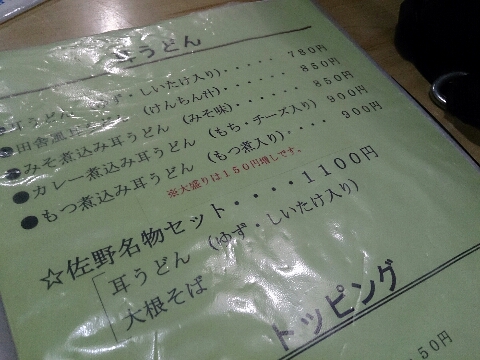 耳うどん
●耳うどん（ゆず・しいたけ入り）・・・・・780円
●田舎風耳うどん（けんちん汁）・・・・・850円
●みそ煮込み耳うどん（みそ味）・・・・・850円
●カレー煮込み耳うどん（もち・チーズ入り）900円
●もつ煮込み耳うどん（もつ煮入り）・・・・900円
※大盛りは150円増しです。
☆佐野名物セット・・・・1100円
耳うどん（ゆず・しいたけ入り）
大根そば
トッピング
50円